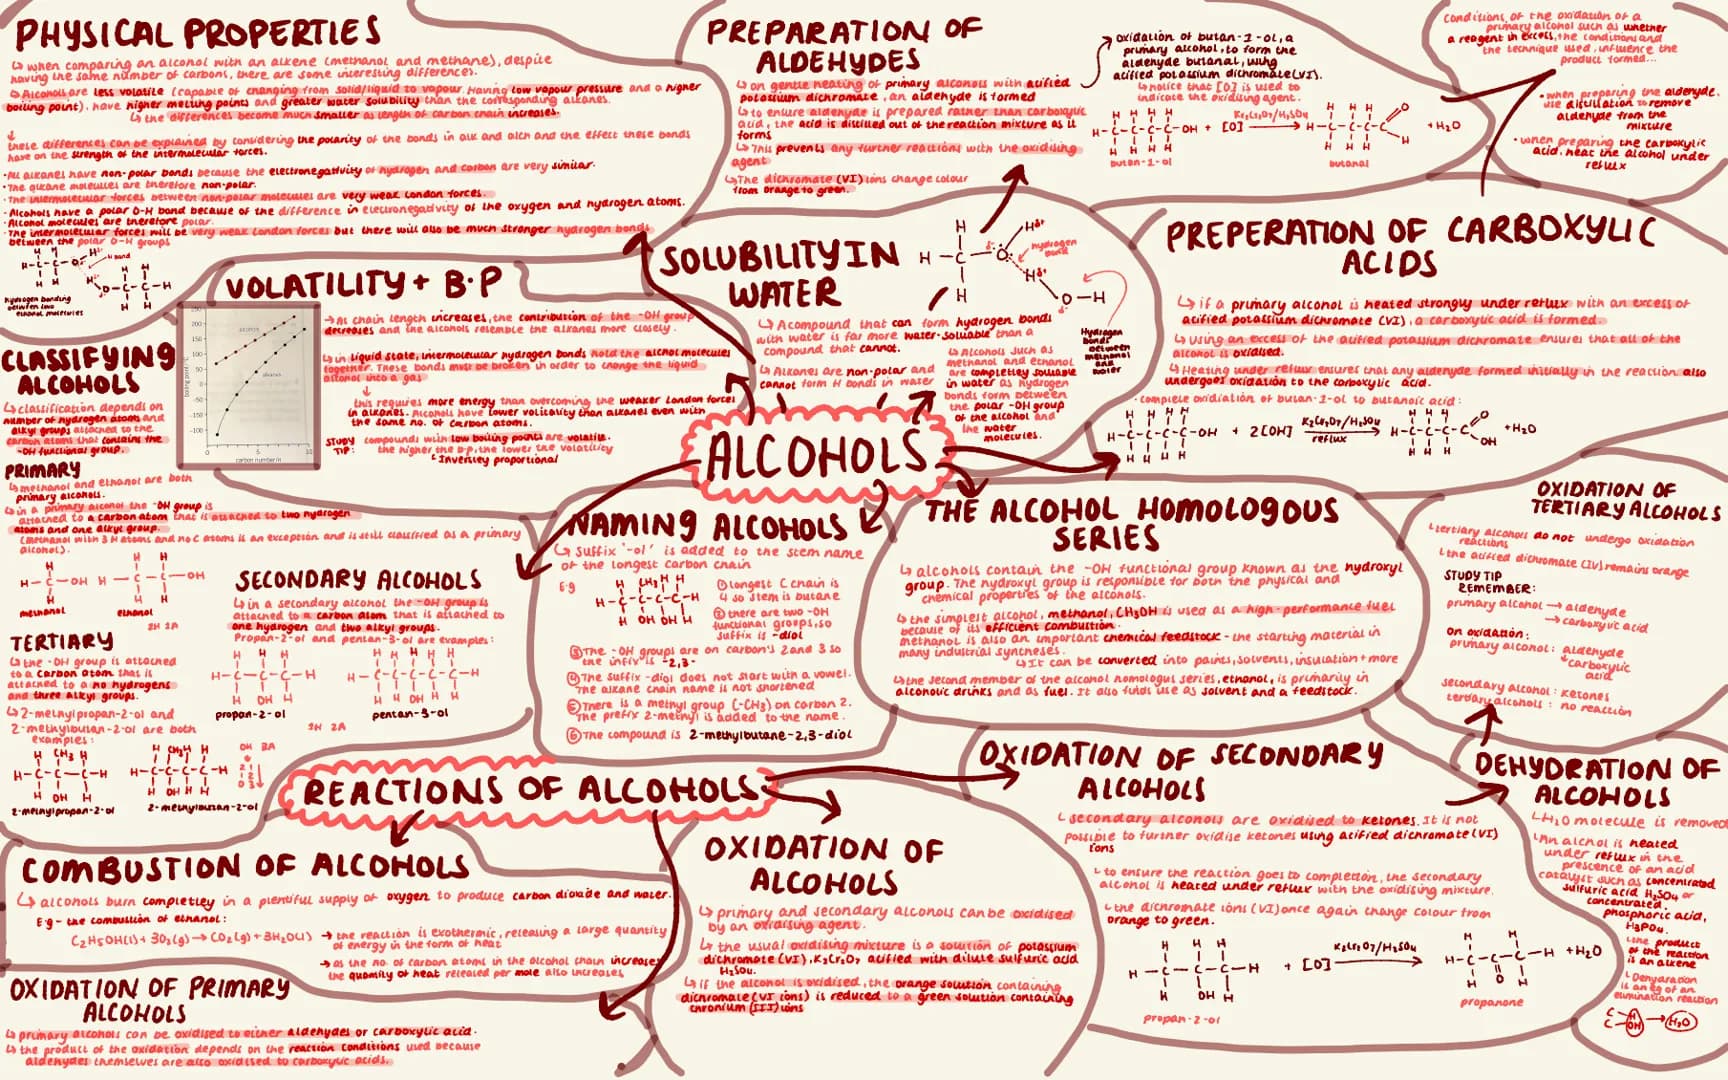 PHYSICAL PROPERTIES
↳ when comparing an alcohol with an alkene (methanol and methane), despite
having the same number of carbons, there are some interesting differences.
↳ Alcohols are less volatile (capable of changing from solid/liquid to vapour. Having low vapour pressure and a higher
boiling point). have higher melting points and greater water solubility than the corresponding alkanes.
↳ the differences become much smaller as length of carbon chain increases.
↓
these differences can be explained by considering the polarity of the bonds in alk and alch and the effect these bonds
have on the strength of the intermolecular forces.
• All alkanes have non-polar bonds because the electronegativity of hydrogen and carbon are very similar.
• The alkane molecules are therefore non-polar.
• The intermolecular forces between non-polar molecules are very weak London forces.
• Alcohols have a polar O-H bond because of the difference in electronegativity of the oxygen and hydrogen atoms.
• Alcohol molecules are therefore polar.
• The intermolecular forces will be very weak London forces but there will also be much stronger hydrogen bonds
between the polar O-H groups
H bond
hydrogen bonding
between two
ethanol molecules
VOLATILITY + B.P
alcohols
alkanes
boiling point
carbon number in
↳ As chain length increases, the contribution of the -OH group
decreases and the alcohols resemble the alkanes more closely.
↳ in liquid state, intermolecular hydrogen bonds hold the alcohol molecules
together. These bonds must be broken in order to change the liquid
alcohol into a gas
↓
this requires more energy than overcoming the weaker London forces
in alkanes. Alcohols have lower volitality than alkanes even with
the same no. of carbon atoms.
STUDY TIP: compounds with low boiling points are volatile.
the higher the b.p, the lower the volatility
↳ Inversley proportional
CLASSIFYING
ALCOHOLS
↳ classification depends on
number of hydrogen atoms and
alkyl groups attached to the
carbon atoms that contains the
-OH functional group.
PRIMARY
↳ methanol and ethanol are both
primary alcohols.
↳ in a primary alcohol the -OH group is
attached to a carbon atom that is attached to two hydrogen
atoms and one alkyl group.
(methanol with 3 H atoms and no C atoms is an exception and is still classified as a primary
alcohol).
methanol
ethanol
2H 1A
SECONDARY ALCOHOLS
↳ in a secondary alcohol the -OH group is
attached to a carbon atom that is attached to
one hydrogen and two alkyl groups.
Propan-2-ol and pentan-3-ol are examples:
propan-2-ol
pentan-3-ol
1H 2A
TERTIARY
↳ the -OH group is attached
to a carbon atom that is
attached to a no hydrogens
and three alkyl groups.
↳ 2-methylpropan-2-ol and
2-methylbutan-2-ol are both
examples:
2-methylpropan-2-ol
2-methylbutan-2-ol
OH 3A
PREPARATION OF
ALDEHYDES
↳ on gentle heating of primary alcohols with acified
potassium dichromate, an aldehyde is formed
↳ to ensure aldehyde is prepared rather than carboxylic
acid, the acid is distilled out of the reaction mixture as it
forms
↳ This prevents any further reactions with the oxidising
agent
↳ The dichromate (VI) ions change colour
from orange to green.
oxidation of butan-1-ol, a
primary alcohol, to form the
aldehyde butanal, using
acified potassium dichromate(VI).
↳ notice that [O] is used to
indicate the oxidising agent.
H-C-C-C-C-OH + [O] K₂Cr₂O₇/H₂SO₄ → H-C-C-C-C + H₂O
butan-1-ol
butanal
Conditions of the oxidation of a
primary alcohol such as whether
a reagent in excess, the conditions and
the technique used, influence the
product formed...
• when preparing the aldehyde,
use distillation to remove
aldehyde from the
mixture
• when preparing the carboxylic
acid, heat the alcohol under
reflux
SOLUBILITY IN
WATER
↳ A compound that can form hydrogen bonds
with water is far more water-soluble than a
compound that cannot.
↳ Alkanes are non-polar and
cannot form H bonds in water
↳ Alcohols such as
methanol and ethanol
are completely soluble
in water as hydrogen
bonds form between
the polar -OH group
of the alcohol and
the water
molecules.
hydrogen
bond
Hydrogen
bonds
between
methanol
and
water
PREPERATION OF CARBOXYLIC
ACIDS
↳ if a primary alcohol is heated strongly under reflux with an excess of
acified potassium dichromate (VI), a carboxylic acid is formed.
↳ Using an excess of the acified potassium dichromate ensures that all of the
alcohol is oxidised.
↳ Heating under reflux ensures that any aldehyde formed initially in the reaction also
undergoes oxidation to the carboxylic acid.
• complete oxidiation of butan-1-ol to butanoic acid:
H-C-C-C-C-OH + 2[OH] K₂Cr₂O₇/H₂SO₄ reflux → H-C-C-C-C OH + H₂O
ALCOHOLS
NAMING ALCOHOLS
↳ Suffix '-ol' is added to the stem name
of the longest carbon chain
E.g
① longest C chain is
4 so stem is butane
② there are two -OH
functional groups, so
suffix is -diol
③ The -OH groups are on carbon's 2 and 3 so
the infix is -2,3-
④ The suffix -diol does not start with a vowel.
The alkane chain name is not shortened
⑤ There is a methyl group (-CH₃) on carbon 2.
The prefix 2-methyl is added to the name.
⑥ The compound is 2-methylbutane-2,3-diol
THE ALCOHOL HOMOLOGOUS
SERIES
↳ alcohols contain the -OH functional group known as the hydroxyl
group. The hydroxyl group is responsible for both the physical and
chemical properties of the alcohols.
↳ the simplest alcohol, methanol, CH₃OH is used as a high-performance fuel
because of its efficient combustion.
methanol is also an important chemical feedstock - the starting material in
many industrial syntheses.
↳ It can be converted into paints, solvents, insulation + more
↳ the second member of the alcohol homologus series, ethanol, is primarily in
alcoholic drinks and as fuel. It also finds use as solvent and a feedstock.
OXIDATION OF
TERTIARY ALCOHOLS
↳ tertiary alcohols do not undergo oxidation
reactions
↳ the acified dichromate (IV) remains orange
STUDY TIP
REMEMBER:
primary alcohol → aldehyde
→ carboxylic acid
on oxidation:
primary alcohol: aldehyde
↓ carboxylic
acid
secondary alcohol: ketones
tertiary alcohols: no reaction
REACTIONS OF ALCOHOLS
COMBUSTION OF ALCOHOLS
↳ alcohols burn completley in a plentiful supply of oxygen to produce carbon dioxide and water.
E.g - the combustion of ethanol:
C₂H₅OH(l) + 3O₂(g) → CO₂(g) + 3H₂O(l)
→ the reaction is exothermic, releasing a large quantity
of energy in the form of heat
→ as the no. of carbon atoms in the alcohol chain increases
the quantity of heat released per mole also increases
OXIDATION OF PRIMARY
ALCOHOLS
↳ primary alcohols can be oxidised to either aldehydes or carboxylic acid.
↳ the product of the oxidation depends on the reaction conditions used because
aldehydes themselves are also oxidised to carboxylic acids.
OXIDATION OF
ALCOHOLS
↳ primary and secondary alcohols can be oxidised
by an oxidising agent.
↳ the usual oxidising mixture is a solution of potassium
dichromate (VI), K₂Cr₂O₇ acified with dilute sulfuric acid
H₂SO₄.
↳ if the alcohol is oxidised, the orange solution containing
dichromate (VI ions) is reduced to a green solution containing
chromium (III) ions
OXIDATION OF SECONDARY
ALCOHOLS
↳ secondary alcohols are oxidised to ketones. It is not
possible to further oxidise ketones using acified dichromate (VI)
ions
↳ to ensure the reaction goes to completion, the secondary
alcohol is heated under reflux with the oxidising mixture.
↳ the dichromate ions (VI) once again change colour from
orange to green.
H-C-C-C-H + [O] K₂Cr₂O₇/H₂SO₄ → H-C-C-C-H + H₂O
propan-2-ol
propanone
DEHYDRATION OF
ALCOHOLS
↳ H₂O molecule is removed
↳ An alchol is heated
under reflux in the
prescence of an acid
catalyst such as concentrated
sulfuric acid, H₂SO₄ or
concentrated
phosphoric acid,
H₃PO₄.
↳ the product
of the reaction
is an alkene
↳ Dehydration
is an eg of an
elimination reaction
C H
C OH → H₂O